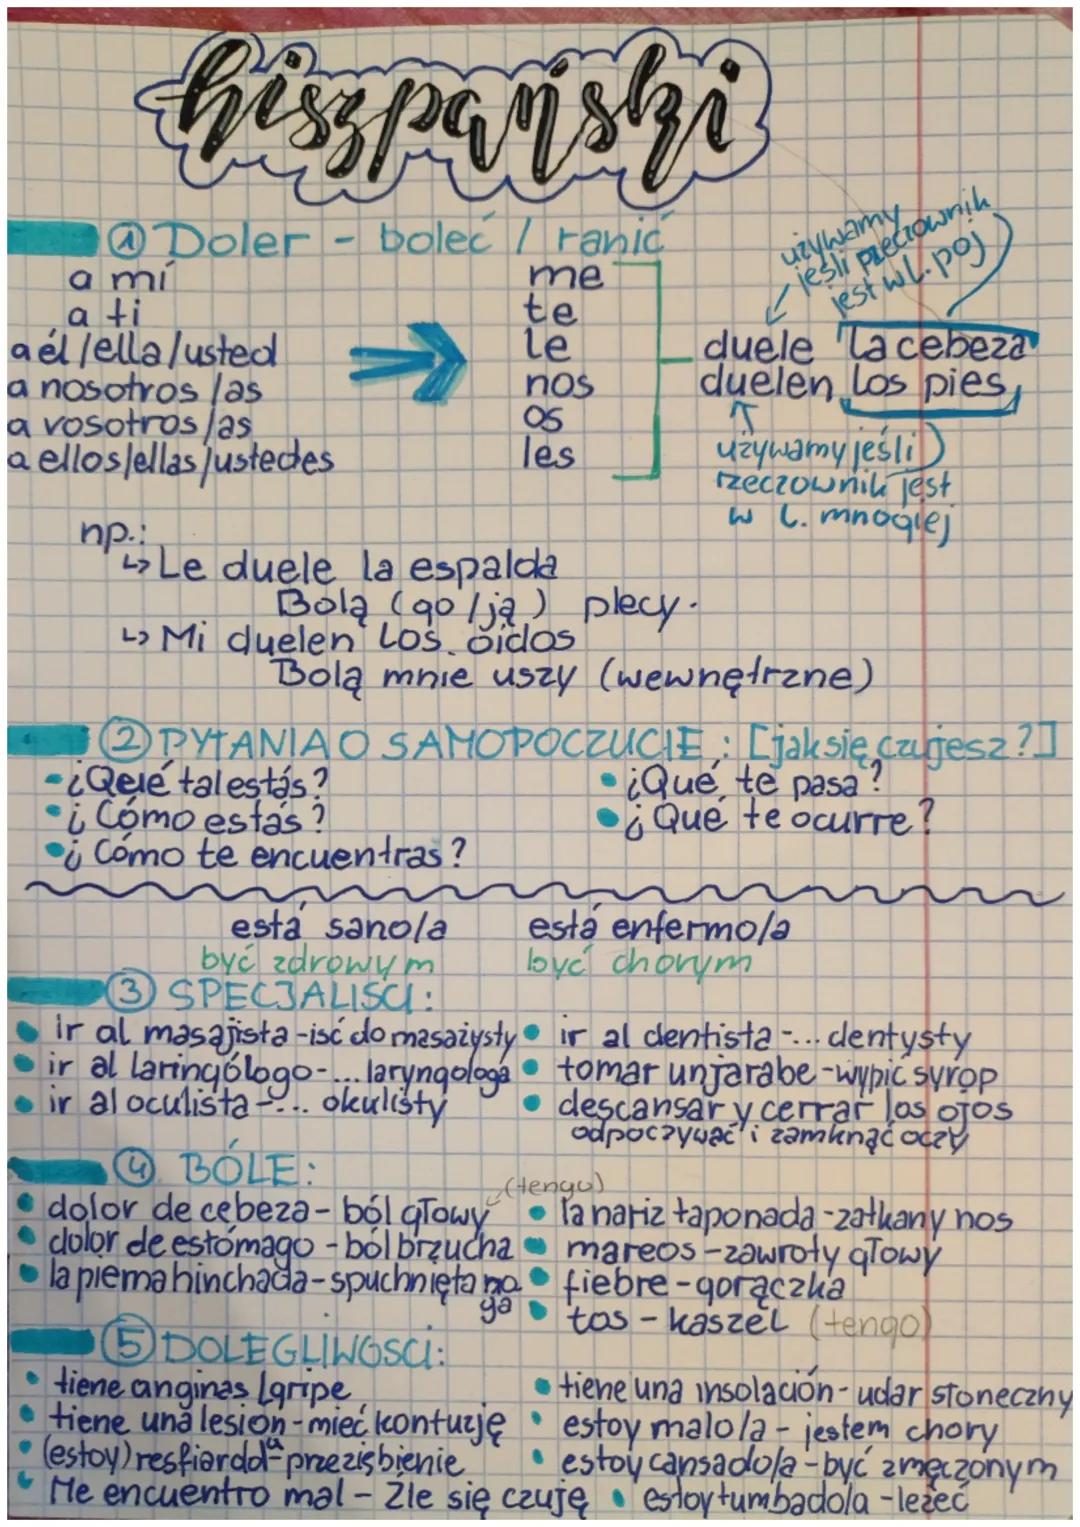 hiszpański
① Doler - boleć / ranić
używamy
jeśli rzeczownik
jest w l. poj
a mí me
a ti te
a él/ella/usted le duele la cebeza
a nosotros/as nos duelen los pies
a vosotros/as os
a ellos/ellas/ustedes les
używamy jeśli
rzeczownik jest
w l. mnogiej
np.:
↳ Le duele la espalda
Bolą (go/ją) plecy.
↳ Mi duelen los oídos
Bolą mnie uszy (wewnętrzne)
② PYTANIA O SAMOPOCZUCIE: [jak się czujesz?]
- ¿Qué tal estás?
• ¿Cómo estás?
• ¿Cómo te encuentras?
• ¿Qué te pasa?
• ¿Qué te ocurre?
está sano/a está enfermo/a
być zdrowym być chorym
③ SPECJALIŚCI:
• ir al masajista - iść do masażysty
• ir al laringólogo - ... laryngologa
• ir al oculista - ... okulisty
• ir al dentista - ... dentysty
• tomar un jarabe - wypić syrop
• descansar y cerrar los ojos
odpoczywać i zamknąć oczy
④ BÓLE:
• dolor de cebeza - ból głowy
• dolor de estómago - ból brzucha
• la pierna hinchada - spuchnięta no
ga
(tengo)
• la nariz taponada - zatkany nos
• mareos - zawroty głowy
• fiebre - gorączka
• tos - kaszel (tengo)
⑤ DOLEGLIWOŚCI:
• tiene anginas / gripe
• tiene una lesión - mieć kontuzję
• (estoy) resfiardo/a - przeziębienie
• Me encuentro mal - Źle się czuję
• tiene una insolación - udar słoneczny
• estoy malo/a - jestem chory
• estoy cansado/a - być zmęczonym
• estoy tumbado/a - leżeć